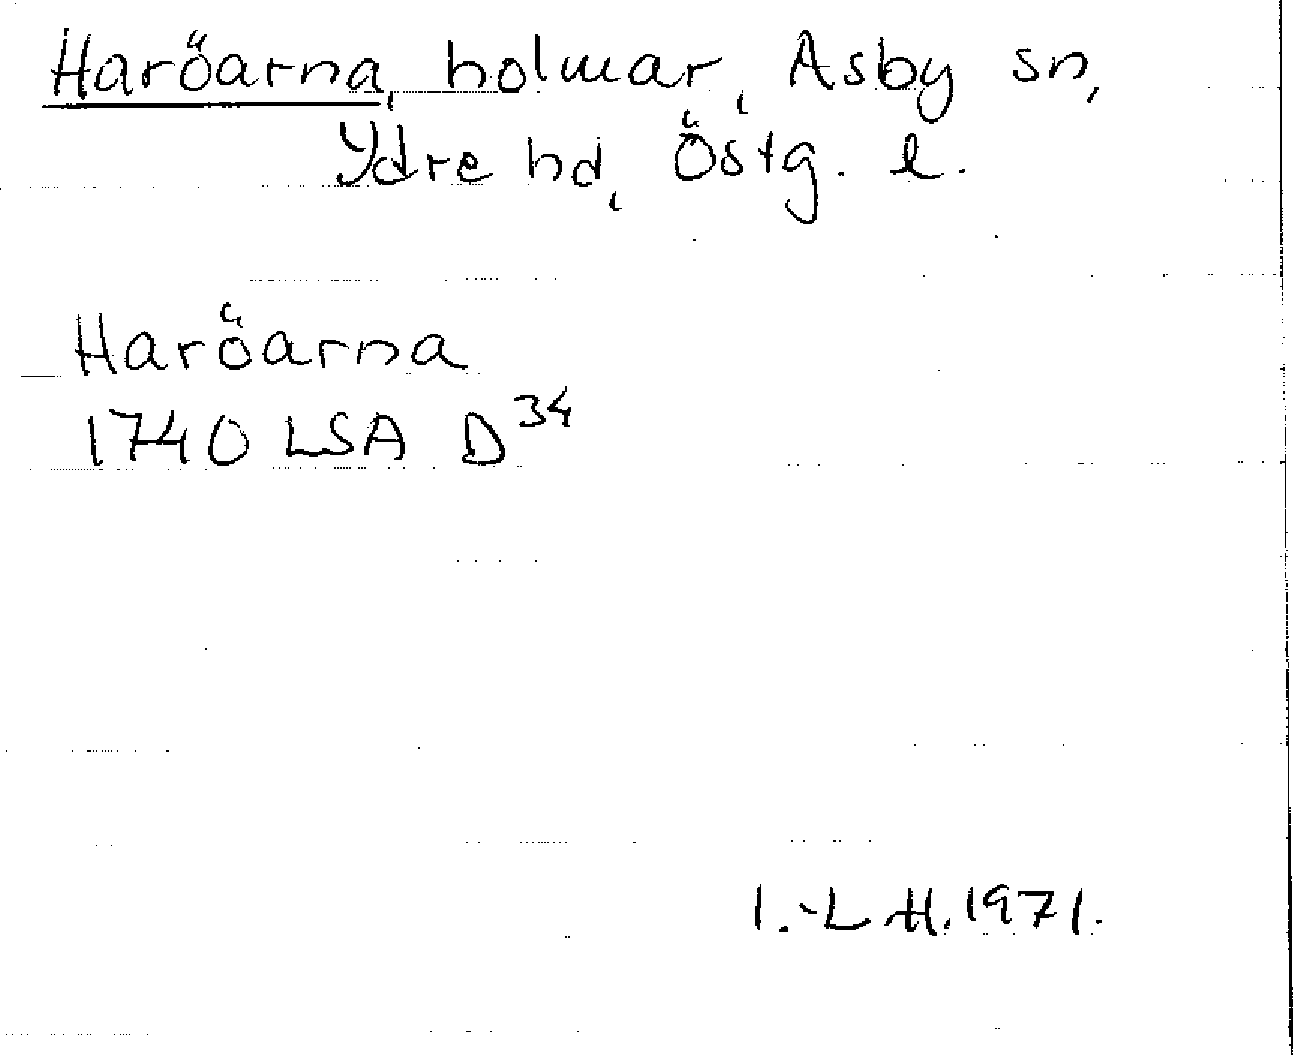 Haröarna, holmar, Asby sn,
Ydre hd, Östg. l.
Haröarna
1740 LSA D³⁴
I.-L H. 1971.